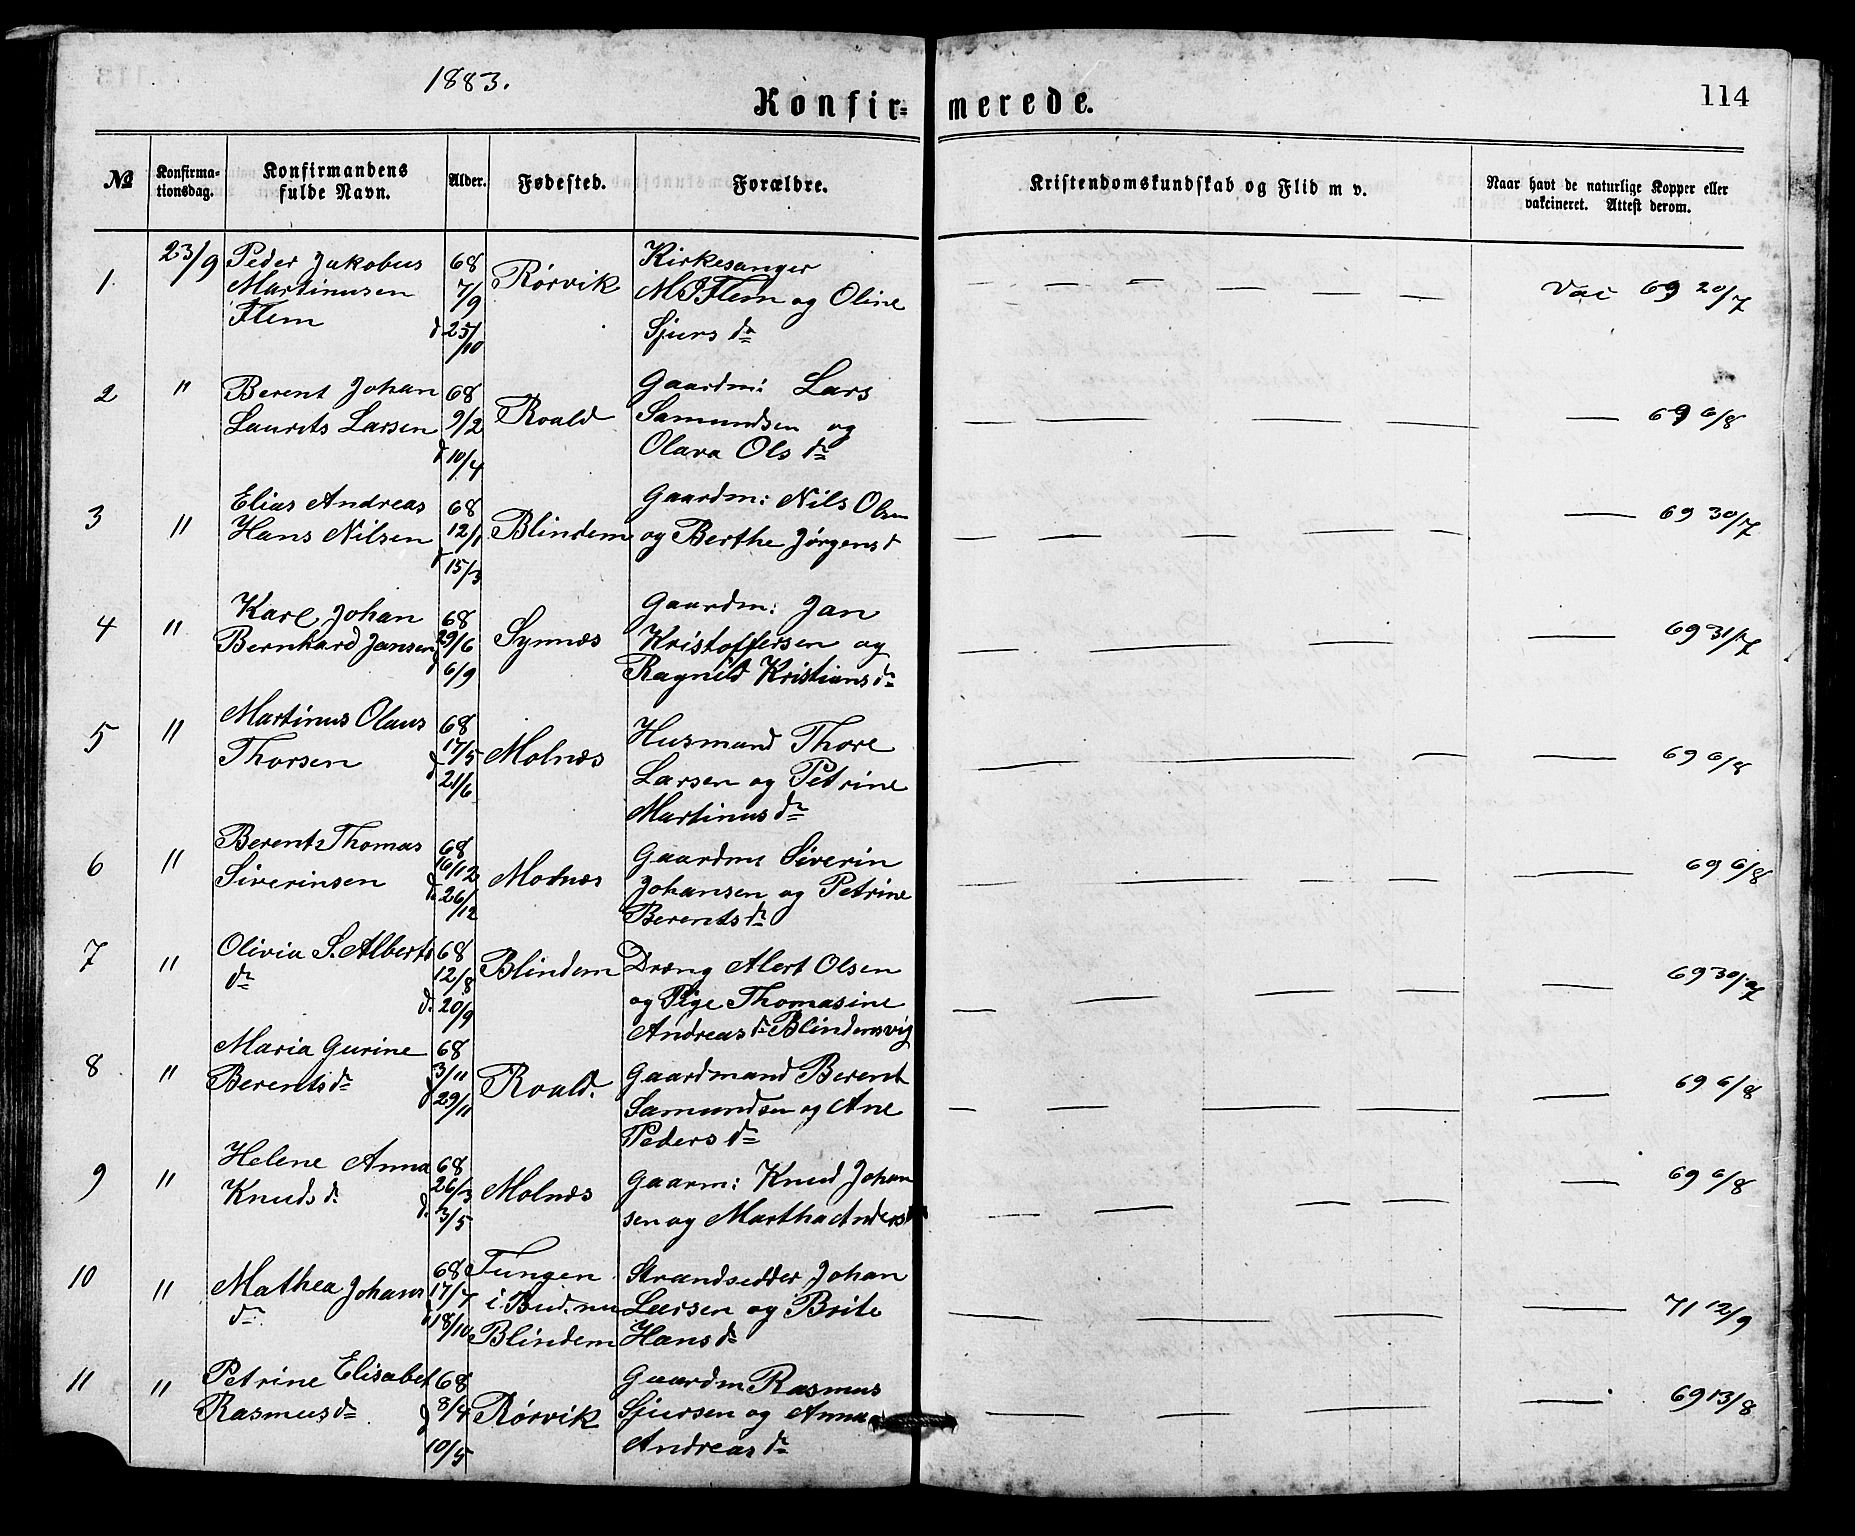 1883.
Konfir- merede.
114
№
Konfirma-
tionsdag.
Konfirmandens
fulde Navn.
Alder.
Fødested.
Forældre.
Kristendomskundskab og Flid m v.
Naar havt de naturlige Kopper eller
vakcineret. Attest derom.
1. 23/9 Peder Jakobus 68 Rørvik Kirkesanger
Martinusen 7/9 M J Flem og Oline Vac 69 20/7
Flem d 25/10 Sjurs dr
2 " Berent Johan 68 Roald Gaardm: Lars
Laurits Larsen 9/2 Samundsen og — 69 6/8
d 10/4 Olava Ols dr
3 " Elias Andreas 68 Blindem Gaardm: Nils Olsen
Hans Nilsen 12/1 og Berthe Jørgens d — 69 30/7
d 15/3
4 " Karl Johan 68 Synnæs Gaardm: Jan
Bernhard Jansen 29/6 Kristoffersen og — 69 31/7
d 6/9 Ragnild Kristians dr
5 " Martinus Olaus 68 Molnæs Husmand Thore
Thorsen 17/5 Larsen og Petrine — 69 6/8
d 21/6 Martinus dr
6 " Berent Thomas 68 Molnæs Gaardm: Siverin
Siverinsen 16/12 Johansen og Petrine — 69 6/8
d. 26/12 Berents dr
7 " Olivia S. Alberts 68 Blindem Dræng Alert Olsen
dr 12/8 og Pige Thomasine — 69 30/7
d. 20/9 Andreas dr Blindemsvig
8 " Maria Gurine 68 Roald. Gaardmand Berent
Berents dr 3/11 Samundsen og Ane — 69 6/8
d 29/11 Peders dr
9 " Helene Anna 68 Molnæs Gaarm: Knud Johan
Knuds d. 26/3 sen og Martha Anders d — 69 6/8
d. 3/5
10 " Mathea Johans 68 Tungen Strandsedder Johan
dr. 17/7 i Bud. nu Larsen og Brite — 71 12/9
d 18/10 Blindem Hans dr
11 " Petrine Elisabet 68 Rørvik Gaardm Rasmus
Rasmus dr 8/4 Sjursen og Anna — 69 13/8
d 10/5 Andreas dr